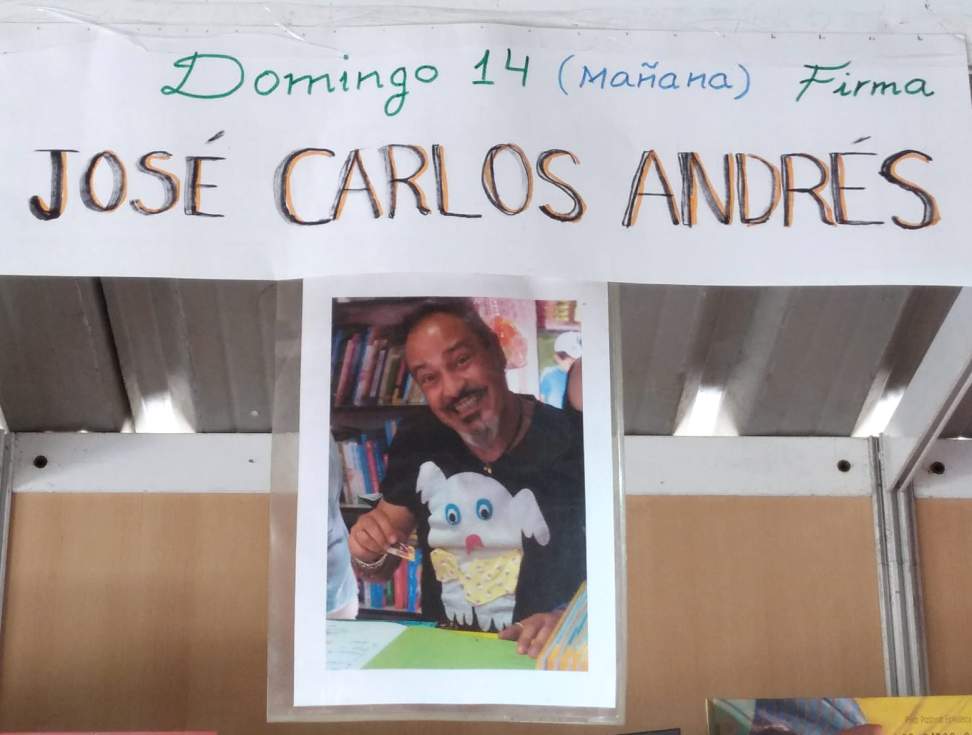 Domingo 14 (Mañana) Firma
JOSÉ CARLOS ANDRÉS